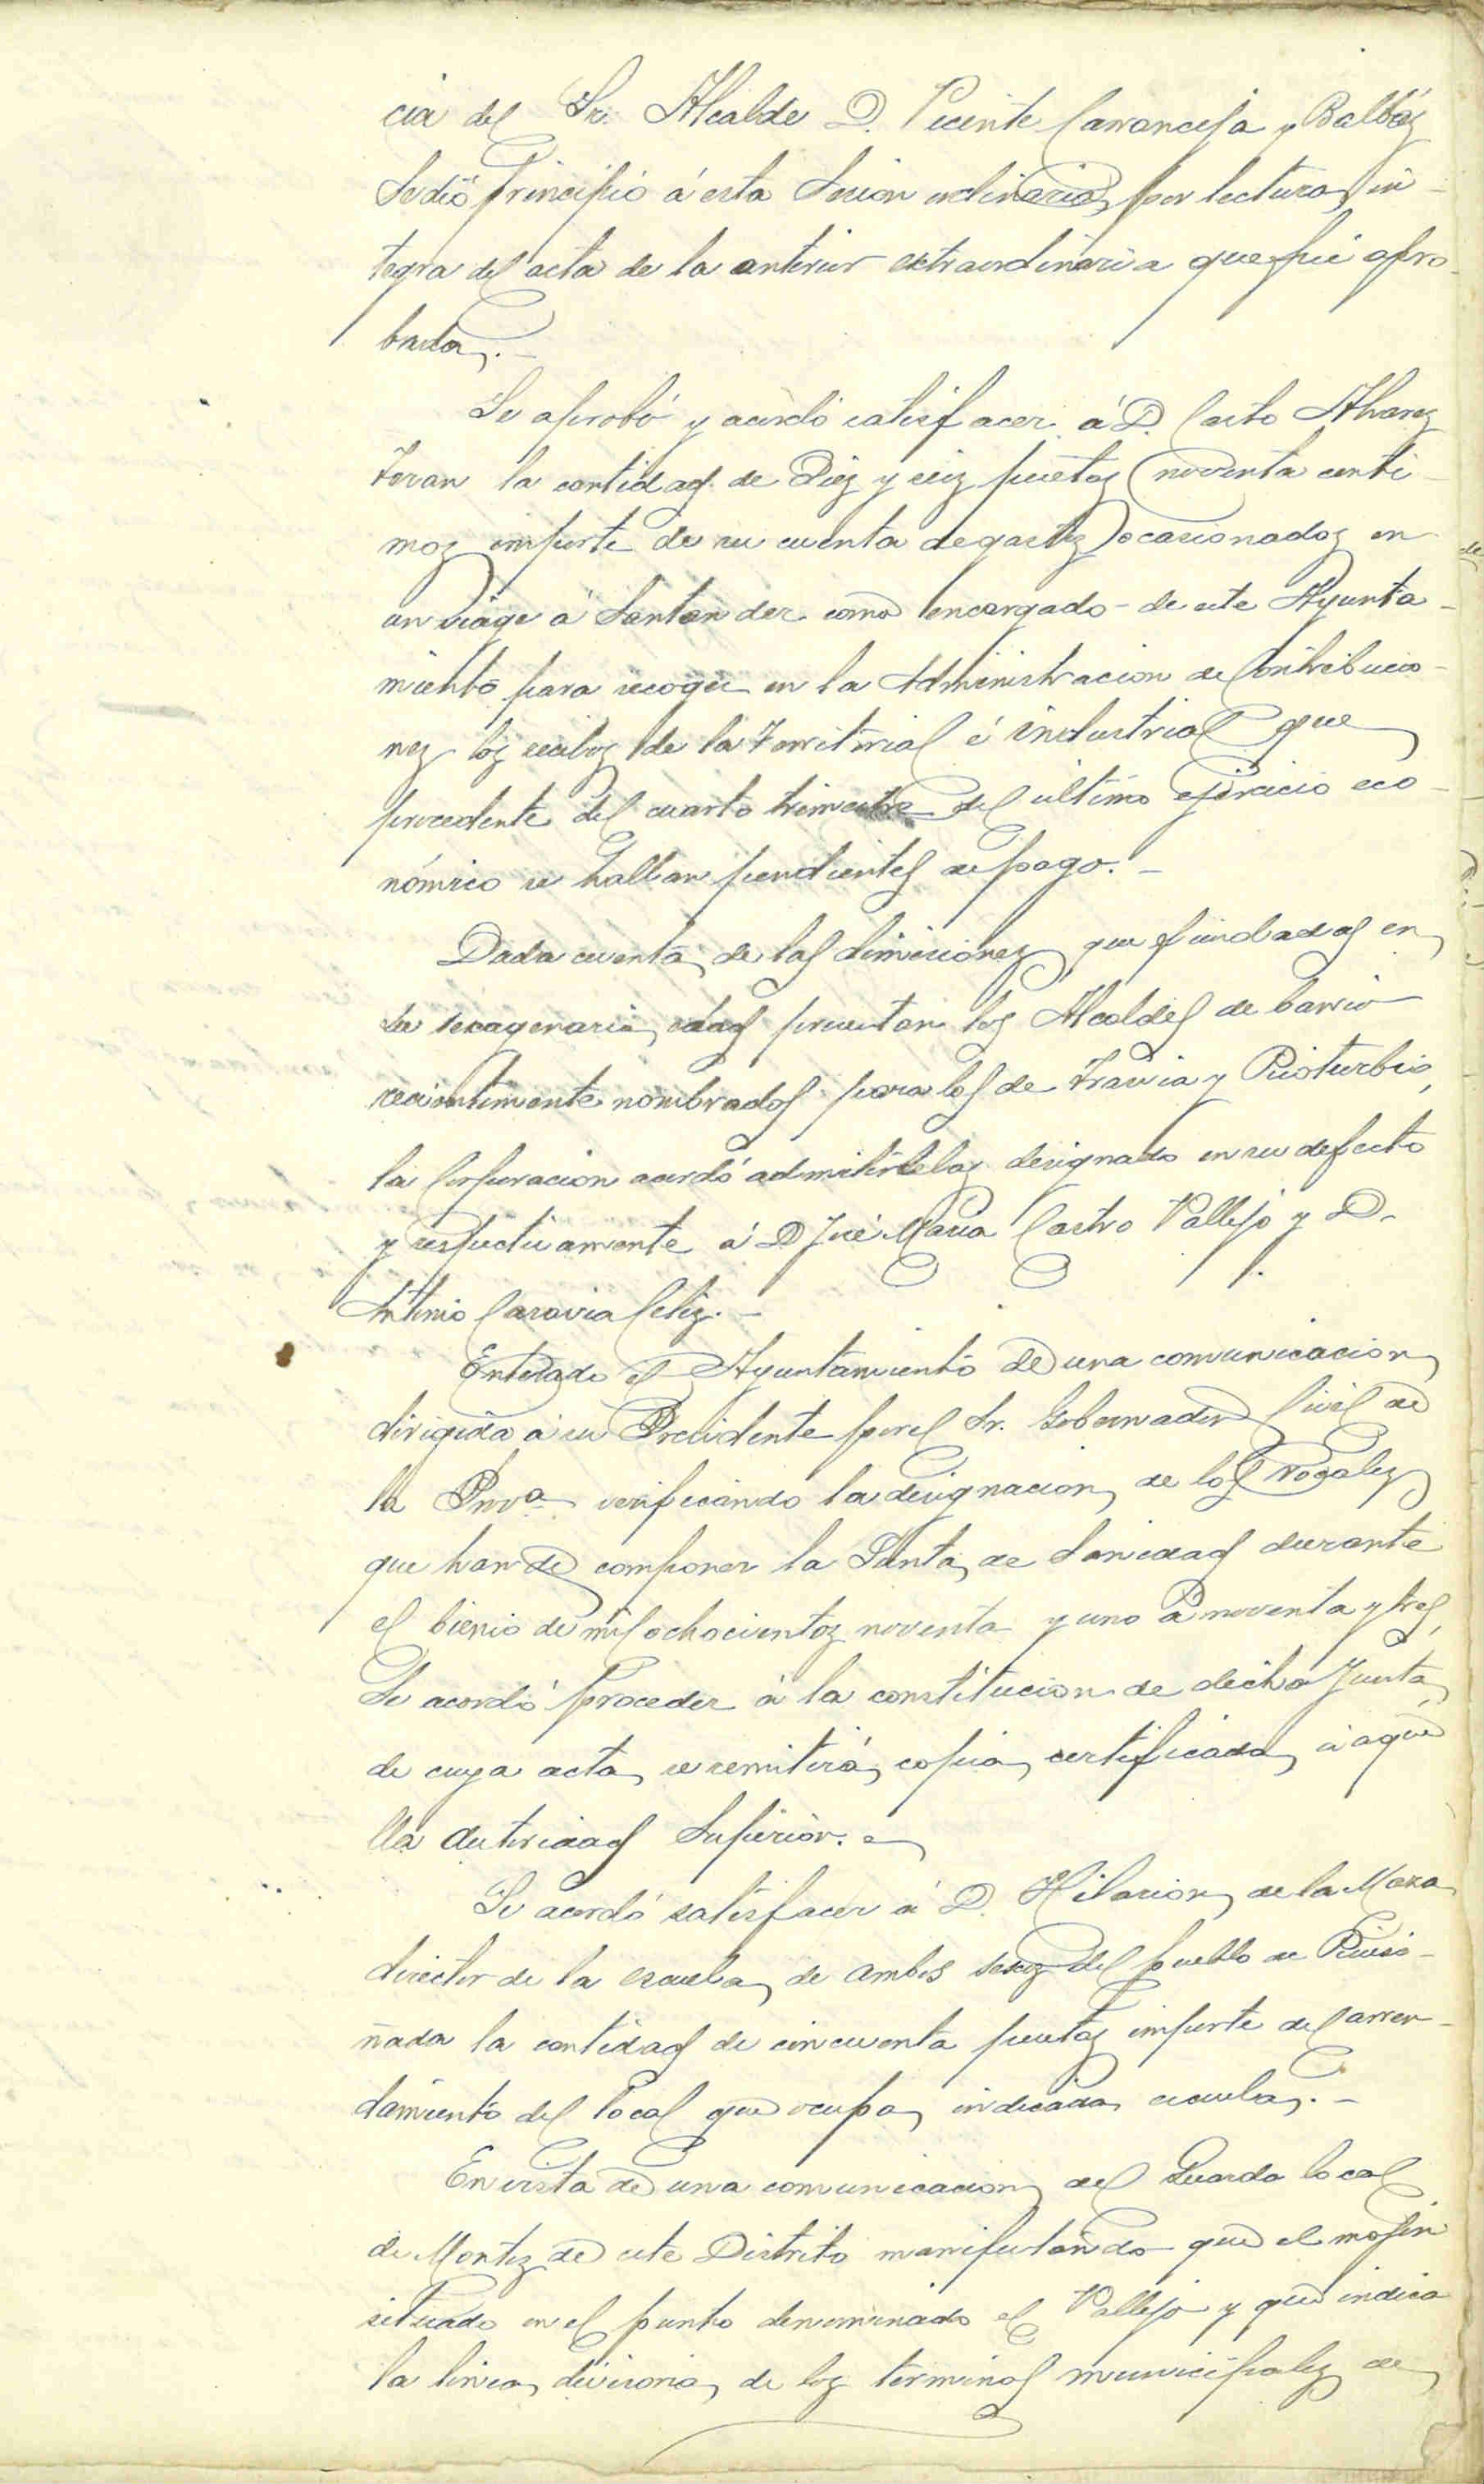 cia del Sr. Alcalde D. Vicente Carranceja y Balbás
Se dió principio á esta Sesion ordinaria, por lectura in-
tegra del acta de la anterior extraordinaria que fué apro-
bada.-
Se aprobó y acordó satisfacer á D. Casto Alvarez
Teran la cantidad de Diez y seiz pesetas noventa centi-
mos importe de su cuenta de gastos ocasionados en
un viage á Santander como encargado de este Ayunta-
miento para recoger en la Administracion de Contribucio-
nes los recibos de la Territorial é industrial que
procedente del cuarto trimestre del ultimo ejercicio eco-
nómico se hallan pendientes de pago.-
Dada cuenta de las dimisiones que fundadas en
la sexagenaria edad presentan los Alcaldes de barrio
recientemente nombrados para los de Travia y Rioturbio,
la Corporacion acordó admitirselas designado en su defecto
y respectivamente á D José Maria Castro Vallejo y D.
Antonio Caravia Celiz.-
Enterado el Ayuntamiento de una comunicacion
dirigida á su Presidente por el Sr. Gobernador Civil de
la Prov.ª verificando la designacion de los vogales
que han de componer la Junta de Sanidad durante
el bienio de mil ochocientos noventa y uno á noventa y tres,
Se acordó proceder á la constitucion de dicha Junta
de cuya acta se remitirá copia certificada á aque
lla Autoridad Superior.-
Se acordó satisfacer á D. Hilarion de la Maza
director de la escuela de ambos sexos del pueblo de Ruise-
ñada la cantidad de cincuenta pesetas importe del arren-
damiento del local que ocupa indicada escuela.-
En vista de una comunicacion del Guarda local
de Montes de este Distrito manifestando que el mojon
situado en el punto denominado el Vallejo y que indica
la linea divisoria de los terminos municipales de